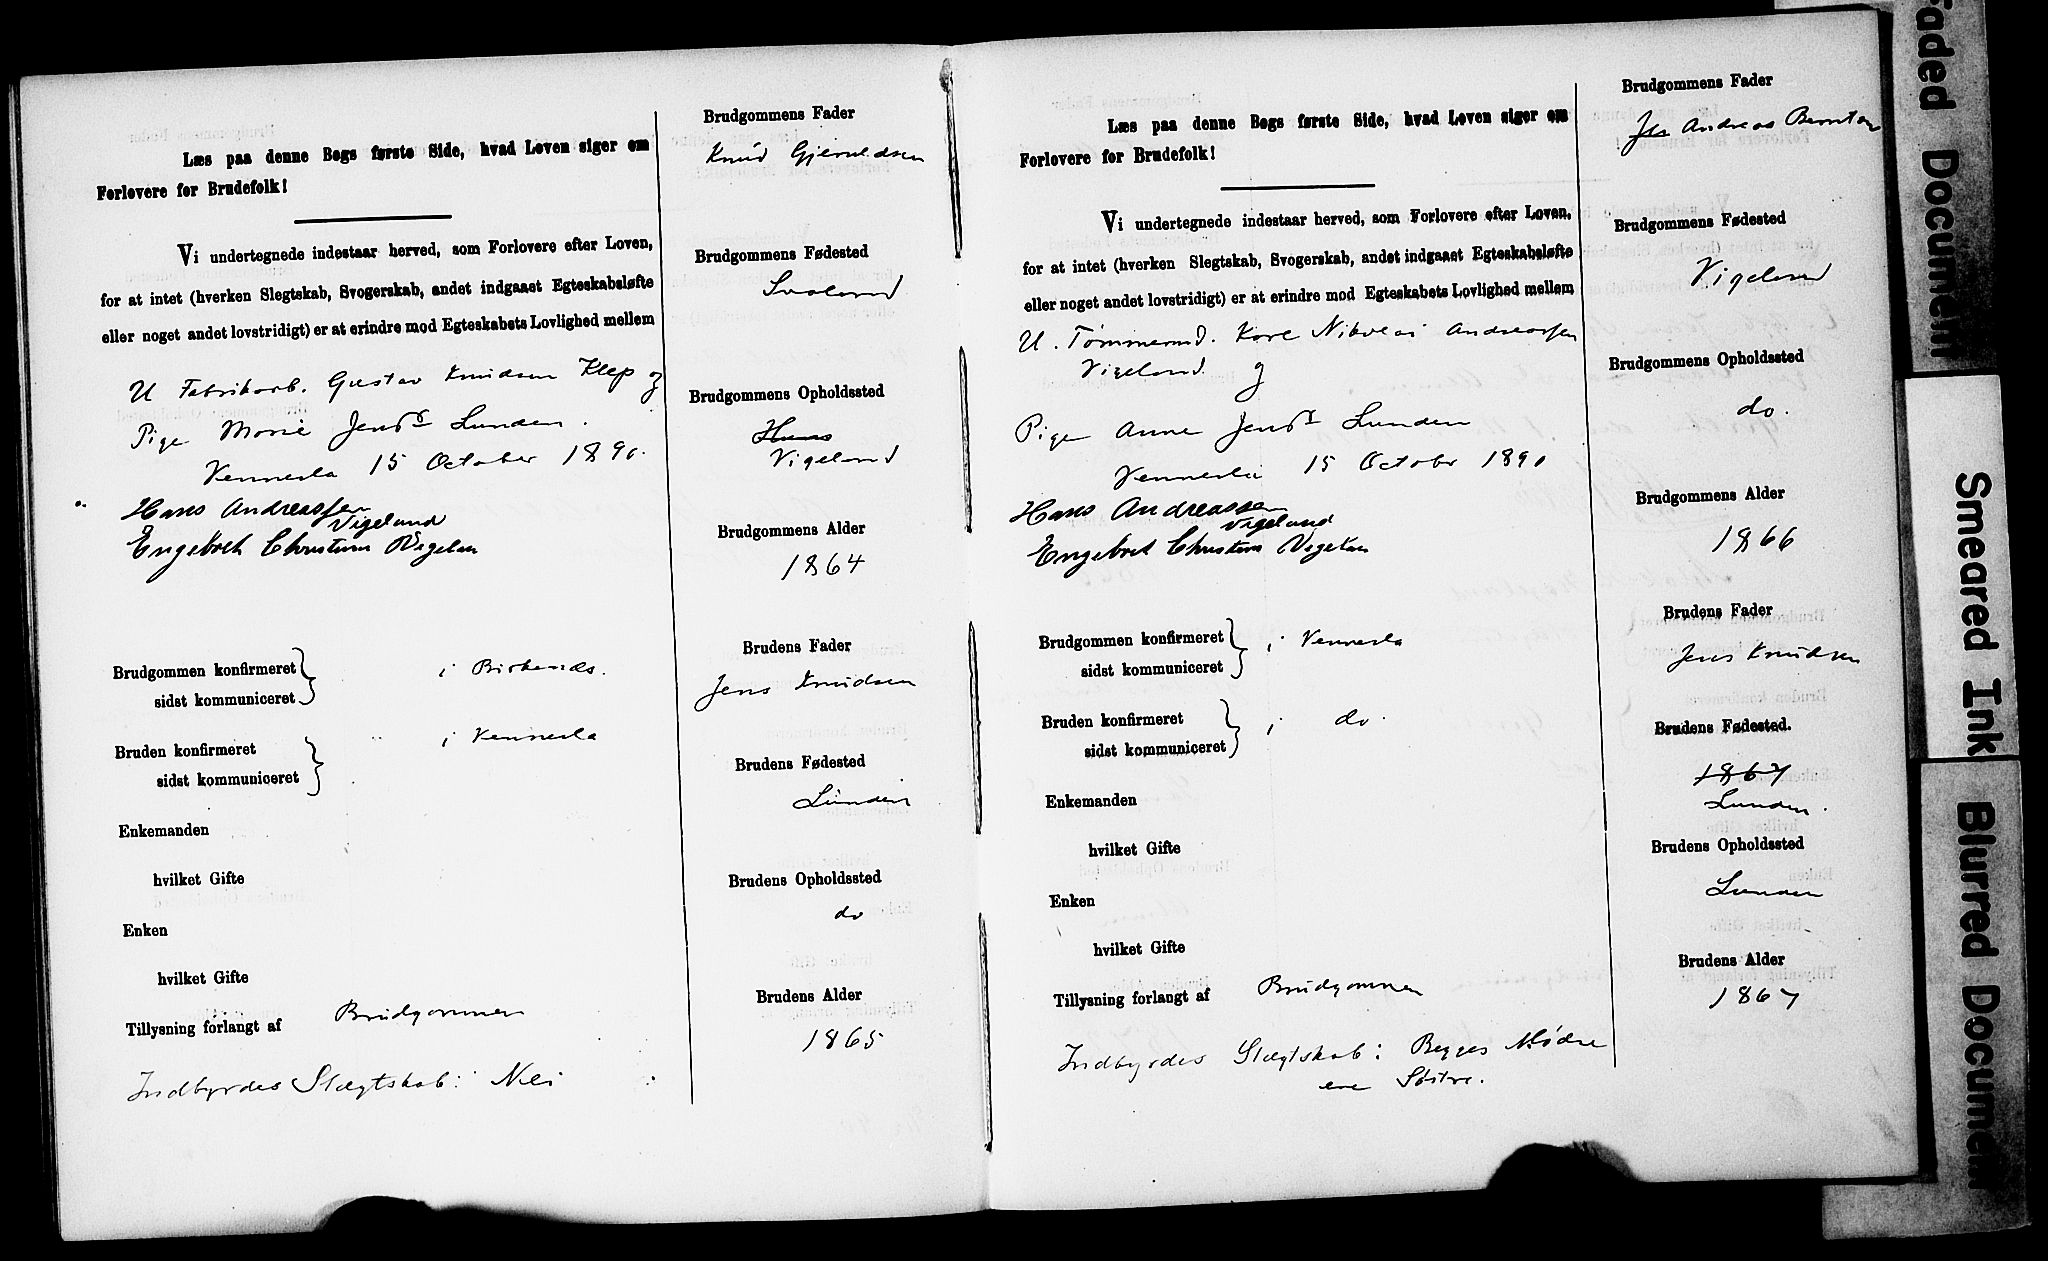 Læs paa denne Bogs første Side, hvad Loven siger om
Forlovere for Brudefolk!
Vi undertegnede indestaar herved, som Forlovere efter Loven,
for at intet (hverken Slegtskab, Svogerskab, andet indgaaet Egteskabsløfte
eller noget andet lovstridigt) er at erindre mod Egteskabets Lovlighed mellem
U Fabrikarb. Gustav Knudsen Klep og
Pige Marie Jensd. Lunden.
Vennesla 15 October 1890.
Hans Andreassen
Vigeland
Engebret Christian Vigelan
Brudgommen konfirmeret
sidst kommuniceret
i Birkenæs.
Bruden konfirmeret
sidst kommuniceret
i Vennesla
Enkemanden
hvilket Gifte
Enken
hvilket Gifte
Tillysning forlangt af Brudgommen
Indbyrdes Slægtskab: Nei
Brudgommens Fader
Knud Gjeruldsen
Brudgommens Fødested
Svaland
Brudgommens Opholdssted
Hans
Vigeland
Brudgommens Alder
1864
Brudens Fader
Jens Knudsen
Brudens Fødested
Lunden
Brudens Opholdssted
do
Brudens Alder
1865
Læs paa denne Bogs første Side, hvad Loven siger om
Forlovere for Brudefolk!
Vi undertegnede indestaar herved, som Forlovere efter Loven,
for at intet (hverken Slegtskab, Svogerskab, andet indgaaet Egteskabsløfte
eller noget andet lovstridigt) er at erindre mod Egteskabets Lovlighed mellem
U. Tømmermd. Karl Nikolai Andreassen
Vigeland og
Pige Anne Jensd. Lunden
Vennesla 15 October 1890
Hans Andreassen
Vigeland
Engebret Christian Vigelan
Brudgommen konfirmeret
sidst kommuniceret
i Vennesla
Bruden konfirmeret
sidst kommuniceret
i do.
Enkemanden
hvilket Gifte
Enken
hvilket Gifte
Tillysning forlangt af Brudgommen
Indbyrdes Slægtskab: Begges Mødre
ere Søstre.
Brudgommens Fader
Andreas Berntsen
Brudgommens Fødested
Vigeland
Brudgommens Opholdssted
do.
Brudgommens Alder
1866
Brudens Fader
Jens Knudsen
Brudens Fødested.
1867
Lunden.
Brudens Opholdssted
Lunden
Brudens Alder
1867
Faded Document
Smeared Ink
Blurred Document